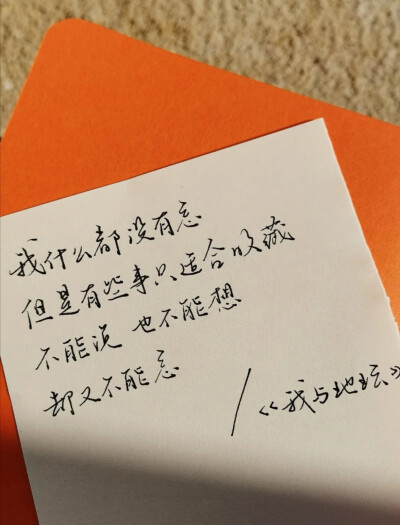 我什么都没有忘
但是有些事只适合收藏
不能说 也不能想
却又不能忘
/《我与地坛》